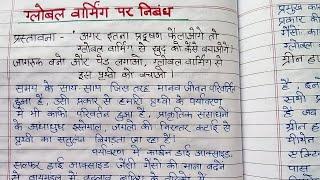 ग्लोबल वार्मिंग पर निबंध
प्रस्तावना - अगर इतना प्रदूषण फैलाओगे तो
ग्लोबल वार्मिंग से खुद को कैसे बचाओगे।
जागरूक बनो और पेड़ लगाओ, ग्लोबल वार्मिंग से
इस पृथ्वी को बचाओ।
समय के साथ-साथ जिस तरह मानव जीवन परिवर्तित
हुआ है, उसी प्रकार से हमारी पृथ्वी के पर्यावरण
में भी काफी परिवर्तन हुआ है, प्राकृतिक संसाधनों
के अंधाधुंध इस्तेमाल, जंगलों की निरन्तर कटाई से
पृथ्वी का संतुलन बिगड़ता जा रहा है।
पर्यावरण में कार्बन डाई आक्साइड,
सल्फर डाई आक्साइड जैसी गैसों की मात्रा बढ़ने
से वायुमंडल में
प्रमुख का
प्रकार की
गैसों का
ग्लोबल व
ग्रीन हा
है,
सभी प्र
है जब
ग्रीन ह
मीथे
सम्मि
पास